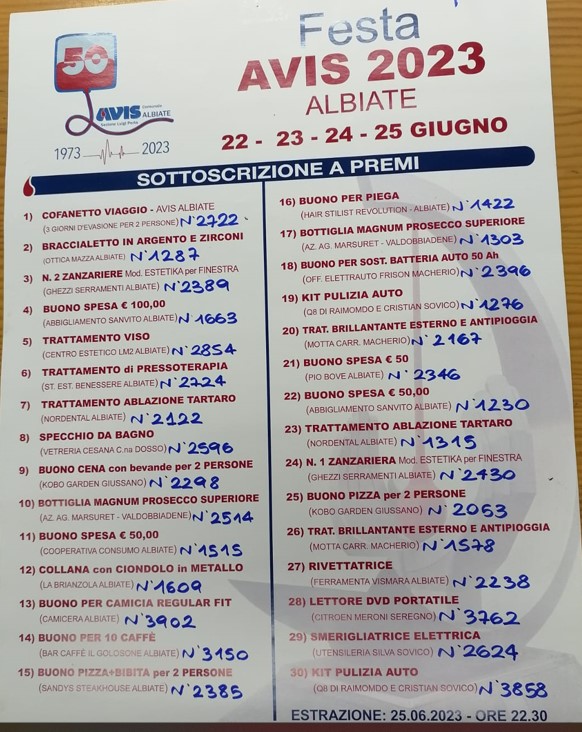 50
AVIS Comunale
ALBIATE
1973 2023
Festa
AVIS 2023
ALBIATE
22 - 23 - 24 - 25 GIUGNO
SOTTOSCRIZIONE A PREMI
1) COFANETTO VIAGGIO - AVIS ALBIATE
(3 GIORNI D'EVASIONE PER 2 PERSONE) N°2722
2) BRACCIALETTO IN ARGENTO E ZIRCONI
(OTTICA MAZZA ALBIATE) N°1287
3) N. 2 ZANZARIERE Mod. ESTETIKA per FINESTRA
(GHEZZI SERRAMENTI ALBIATE) N°2389
4) BUONO SPESA € 100,00
(ABBIGLIAMENTO SANVITO ALBIATE) N°1663
5) TRATTAMENTO VISO
(CENTRO ESTETICO LM2 ALBIATE) N°2854
6) TRATTAMENTO di PRESSOTERAPIA
(ST. EST. BENESSERE ALBIATE) N°2724
7) TRATTAMENTO ABLAZIONE TARTARO
(NORDENTAL ALBIATE) N°2122
8) SPECCHIO DA BAGNO
(VETRERIA CESANA C.na DOSSO) N°2596
9) BUONO CENA con bevande per 2 PERSONE
(KOBO GARDEN GIUSSANO) N°2298
10) BOTTIGLIA MAGNUM PROSECCO SUPERIORE
(AZ. AG. MARSURET - VALDOBBIADENE) N°2514
11) BUONO SPESA € 50,00
(COOPERATIVA CONSUMO ALBIATE) N°1515
12) COLLANA con CIONDOLO in METALLO
(LA BRIANZOLA ALBIATE) N°1609
13) BUONO PER CAMICIA REGULAR FIT
(CAMICERIA ALBIATE) N°3902
14) BUONO PER 10 CAFFÈ
(BAR CAFFÈ IL GOLOBONE ALBIATE) N°3150
15) BUONO PIZZA+BIBITA per 2 PERSONE
(SANDYS STEAKHOUSE ALBIATE) N°2385
16) BUONO PER PIEGA
(HAIR STILIST REVOLUTION - ALBIATE) N°1422
17) BOTTIGLIA MAGNUM PROSECCO SUPERIORE
(AZ. AG. MARSURET - VALDOBBIADENE) N°1303
18) BUONO PER SOST. BATTERIA AUTO 50 Ah
(OFF. ELETTRAUTO FRISON MACHERIO) N°2396
19) KIT PULIZIA AUTO
(Q8 DI RAIMONDO E CRISTIAN SOVICO) N°1276
20) TRAT. BRILLANTANTE ESTERNO E ANTIPIOGGIA
(MOTTA CARR. MACHERIO) N°2167
21) BUONO SPESA € 50
(PIO BOVE ALBIATE) N°2346
22) BUONO SPESA € 50,00
(ABBIGLIAMENTO SANVITO ALBIATE) N°1230
23) TRATTAMENTO ABLAZIONE TARTARO
(NORDENTAL ALBIATE) N°1315
24) N. 1 ZANZARIERA Mod. ESTETIKA per FINESTRA
(GHEZZI SERRAMENTI ALBIATE) N°2430
25) BUONO PIZZA per 2 PERSONE
(KOBO GARDEN GIUSSANO) N°2053
26) TRAT. BRILLANTANTE ESTERNO E ANTIPIOGGIA
(MOTTA CARR. MACHERIO) N°1578
27) RIVETTATRICE
(FERRAMENTA VISMARA ALBIATE) N°2238
28) LETTORE DVD PORTATILE
(CITROEN MERONI SEREGNO) N°3762
29) SMERIGLIATRICE ELETTRICA
(UTENSILERIA SILVA SOVICO) N°2624
30) KIT PULIZIA AUTO
(Q8 DI RAIMONDO E CRISTIAN SOVICO) N°3858
ESTRAZIONE: 25.06.2023 - ORE 22.30